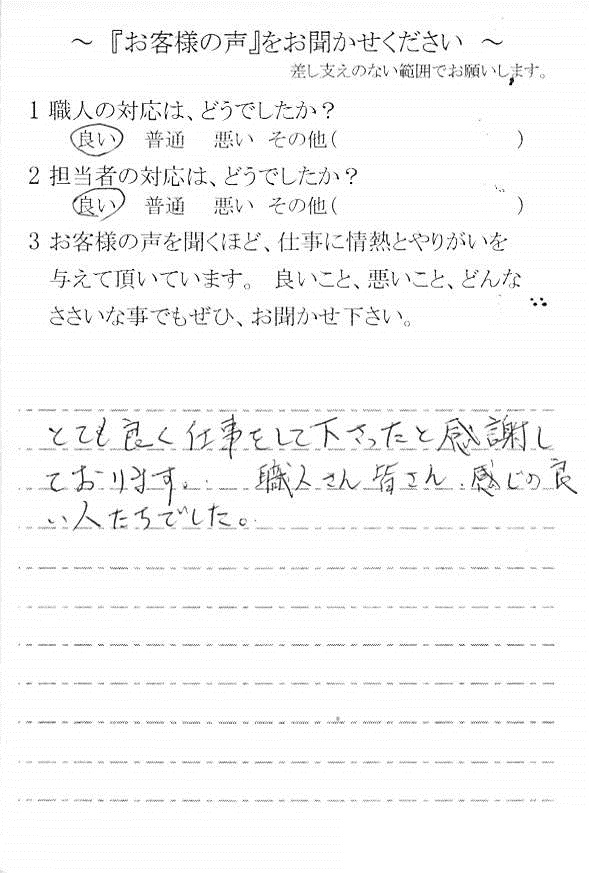 ～ 『お客様の声』をお聞かせください ～
差し支えのない範囲でお願いします。
1 職人の対応は、どうでしたか？
良い 普通 悪い その他( )
2 担当者の対応は、どうでしたか？
良い 普通 悪い その他( )
3 お客様の声を聞くほど、仕事に情熱とやりがいを
与えて頂いています。 良いこと、悪いこと、どんな
ささいな事でもぜひ、お聞かせ下さい。
とても良く仕事をして下さったと感謝し
ております。 職人さん皆さん、感じの良
い人たちでした。